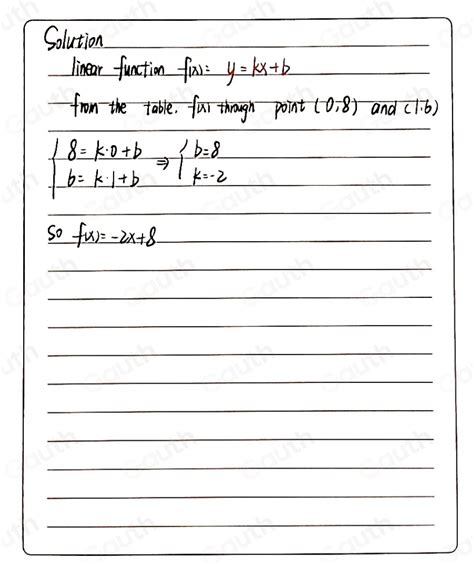 Solution
linear function f(x): y=kx+b
from the table. f(x) through point (0,8) and (1,6)
{ 8=k·0+b ⇒ { b=8
6=k·1+b k=-2
So f(x)=-2x+8